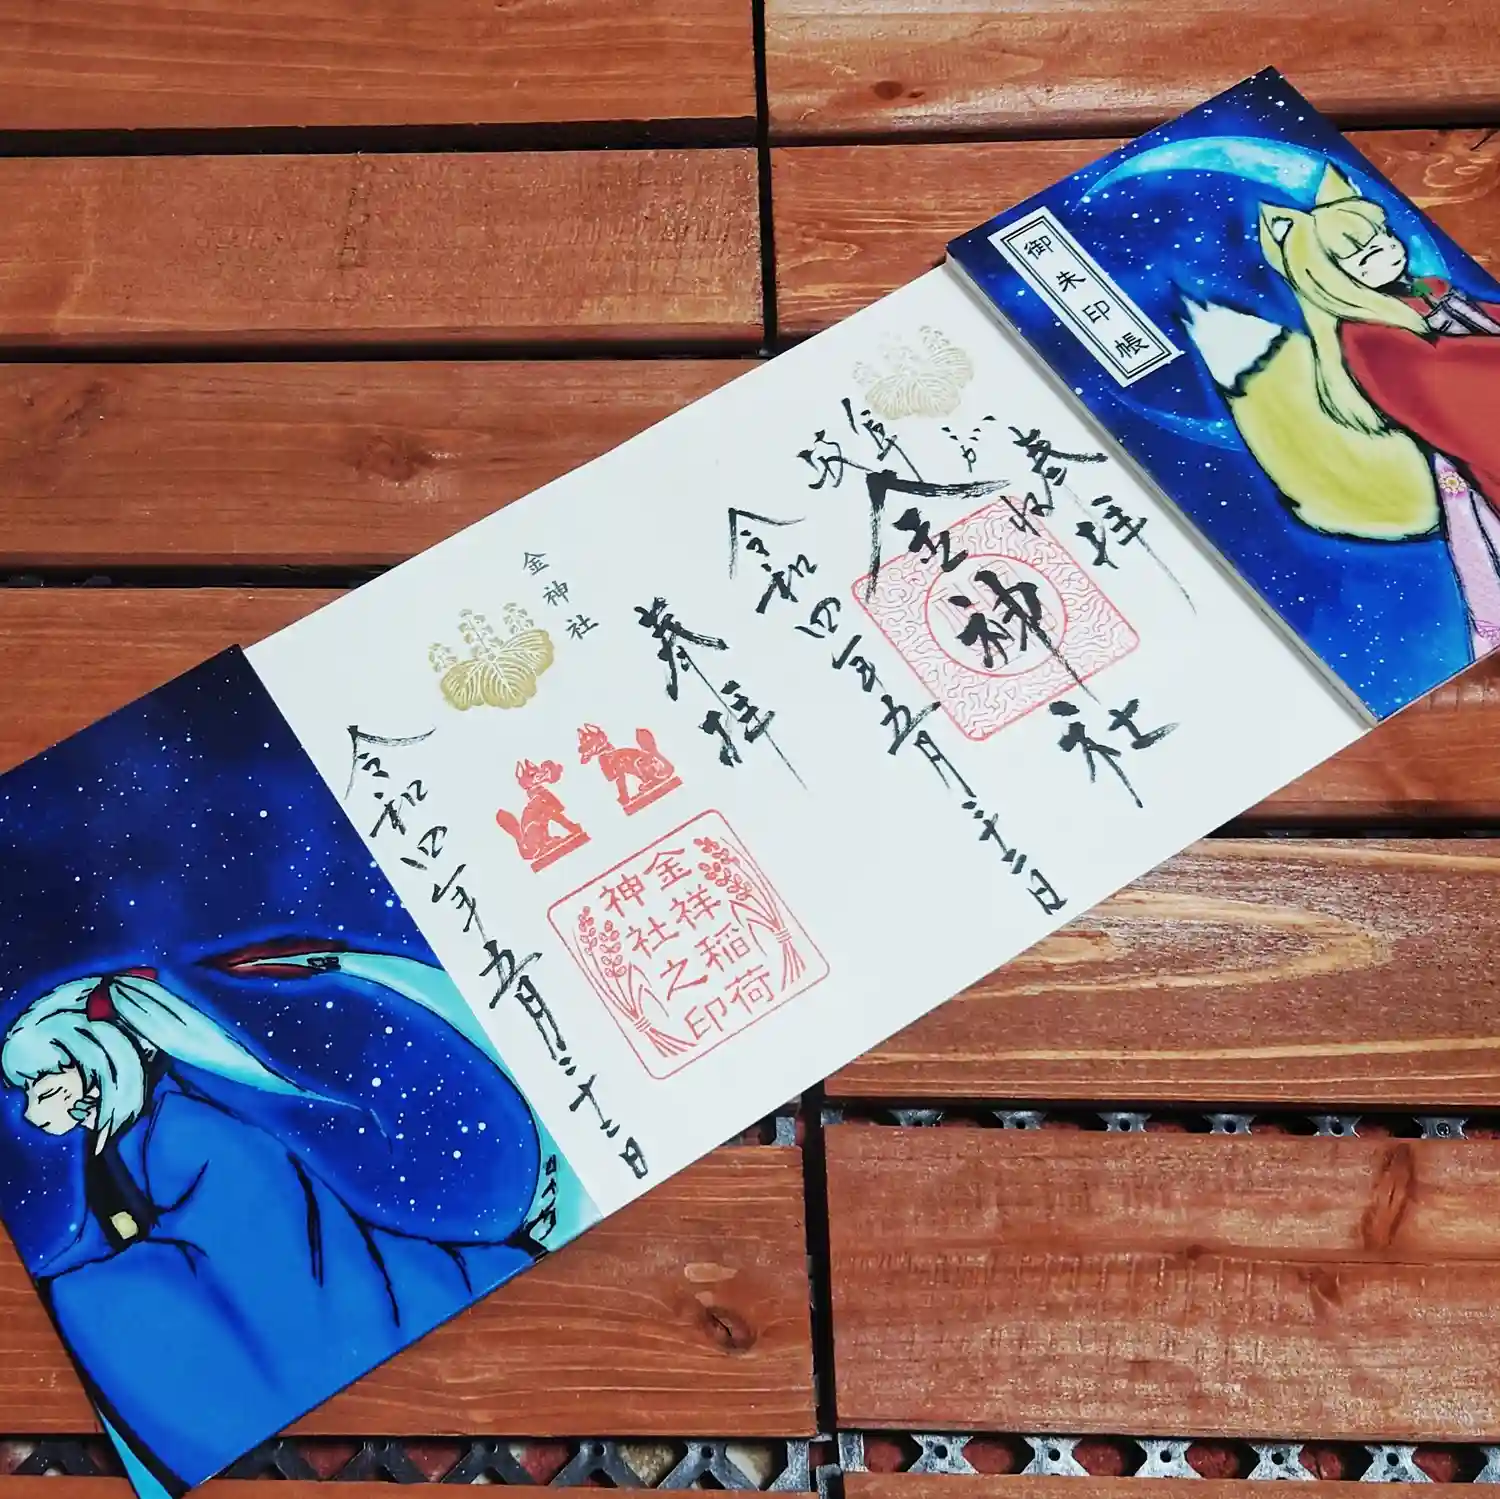 御朱印帳
奉拝
岐阜
こがね
金神社
令和四年五月二十二日
奉拝
金神社
金祥稲荷
神社之印
令和四年五月二十二日